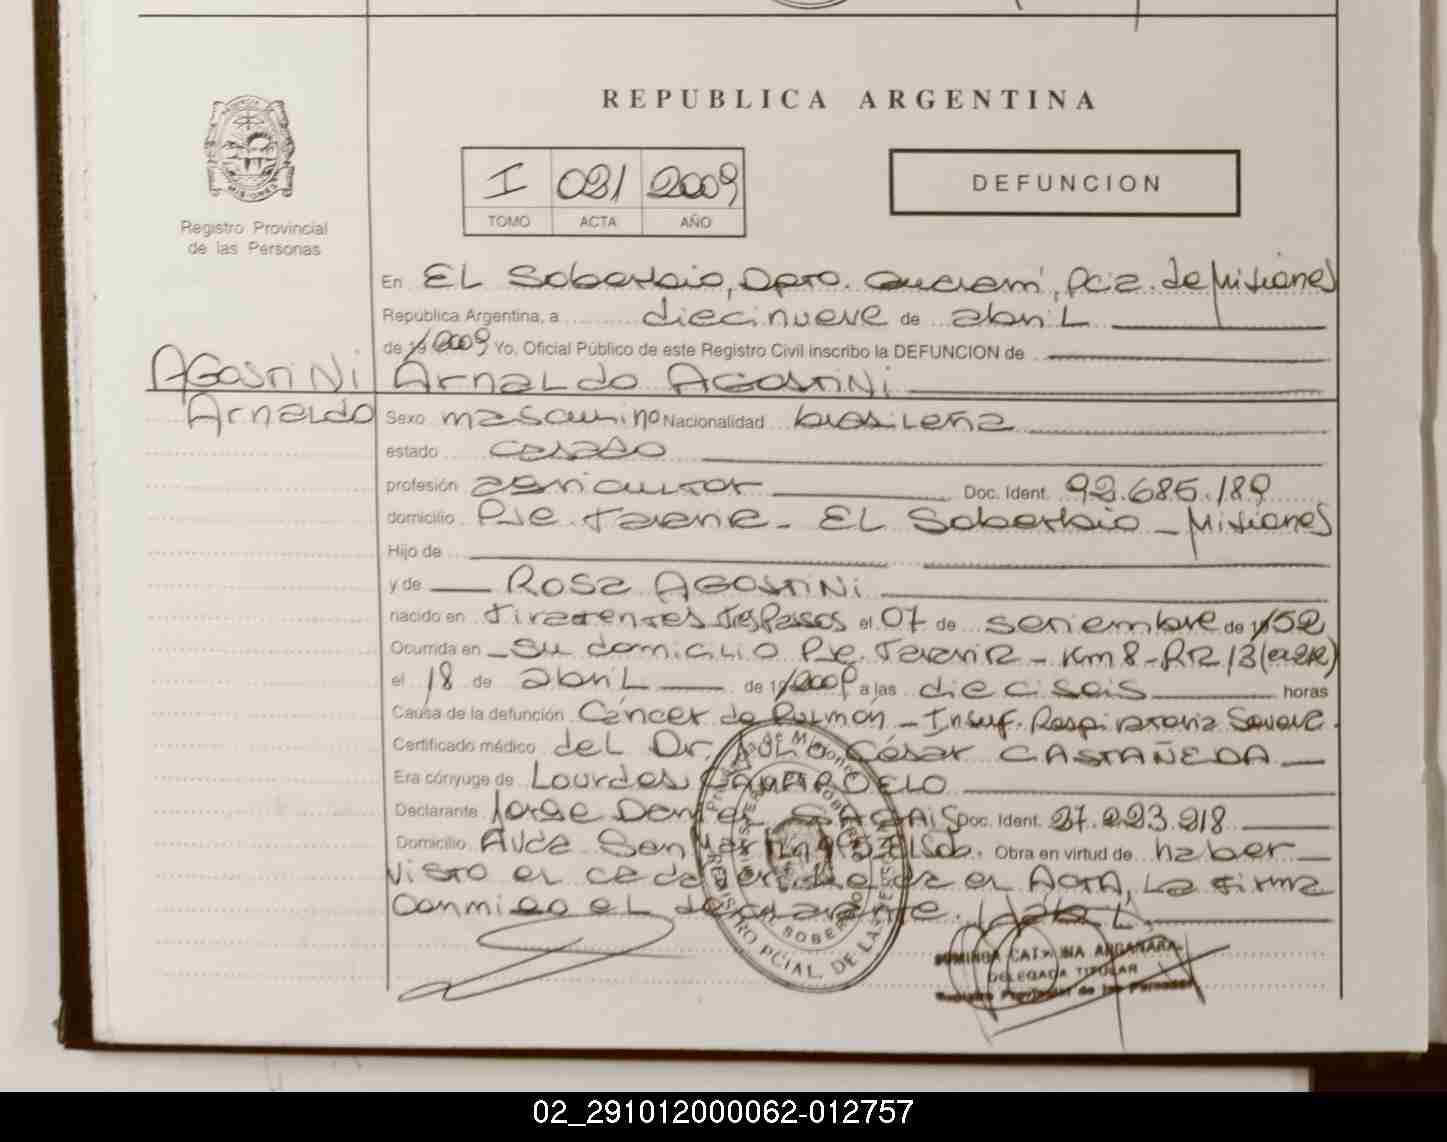 REPUBLICA ARGENTINA
I 021 2009
TOMO ACTA AÑO
DEFUNCION
Registro Provincial
de las Personas
En EL Soberbio, Dpto. Guaraní, Pcia. de Misiones
Republica Argentina, a diecinueve de abriL
de 19 2009 Yo, Oficial Público de este Registro Civil inscribo la DEFUNCION de
AGOSTINI ArnaLdo AGOSTINI
ArnaLdo Sexo mascuLino Nacionalidad brasiLeña
estado casado
profesión agricuLtor Doc. Ident. 92.685.189
domicilio Pje. - EL Soberbio - Misiones
Hijo de
y de Rosa AGOSTINI
nacido en Tiradentes Tres Passos el 07 de setiembre de 1952
Ocurrida en - su domiciLio Pje. - Km 8 - RP2 13
el 18 de abriL de 19 2009 a las dieciseis horas
Causa de la defunción Cáncer de Pulmón - Insuf. Respiratoria Severa.
Certificado médico deL Dr. César CASTAÑEDA
Era cónyuge de Lourdes
Declarante Jorge Doc. Ident. 27.223.218
Domicilio Avda San Martín Sob. Obra en virtud de haber
visto el cadáver Leída el ACTA, La firma
conmigo eL decLarante.
DOMINGA CATALINA
DELEGADA TITULAR
Registro Provincial de las Personas
02_291012000062-012757